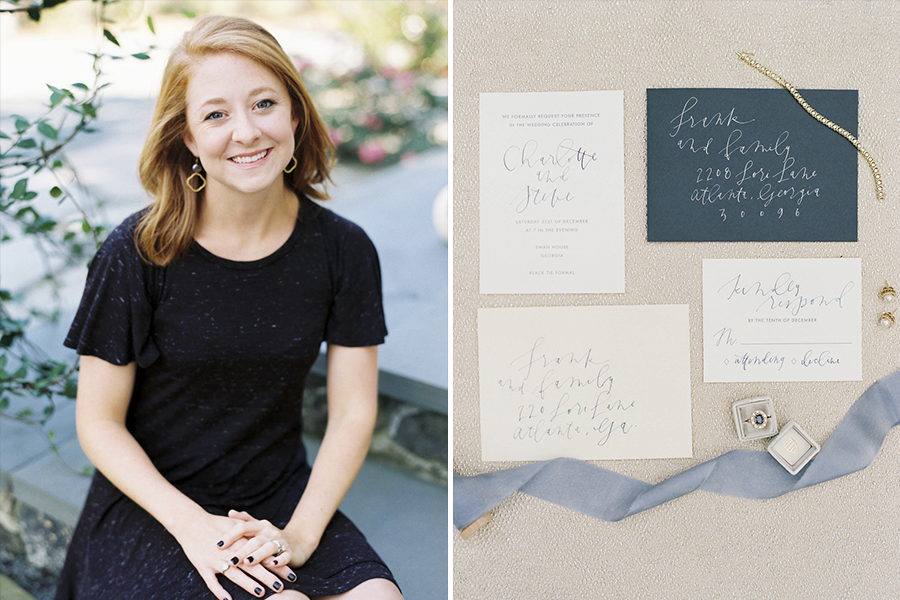 WE FORMALLY REQUEST YOUR PRESENCE
IN THE WEDDING CELEBRATION OF
Charlotte
and
Steve
SATURDAY 31ST OF DECEMBER
AT 7 IN THE EVENING
SWAN HOUSE
GEORGIA
BLACK TIE FORMAL
Frank
and family
2208 Lore Lane
Atlanta, Georgia
30096
Kindly
respond
BY THE TENTH OF DECEMBER
M
attending decline
Frank
and family
220 Lore Lane
Atlanta, Ga.